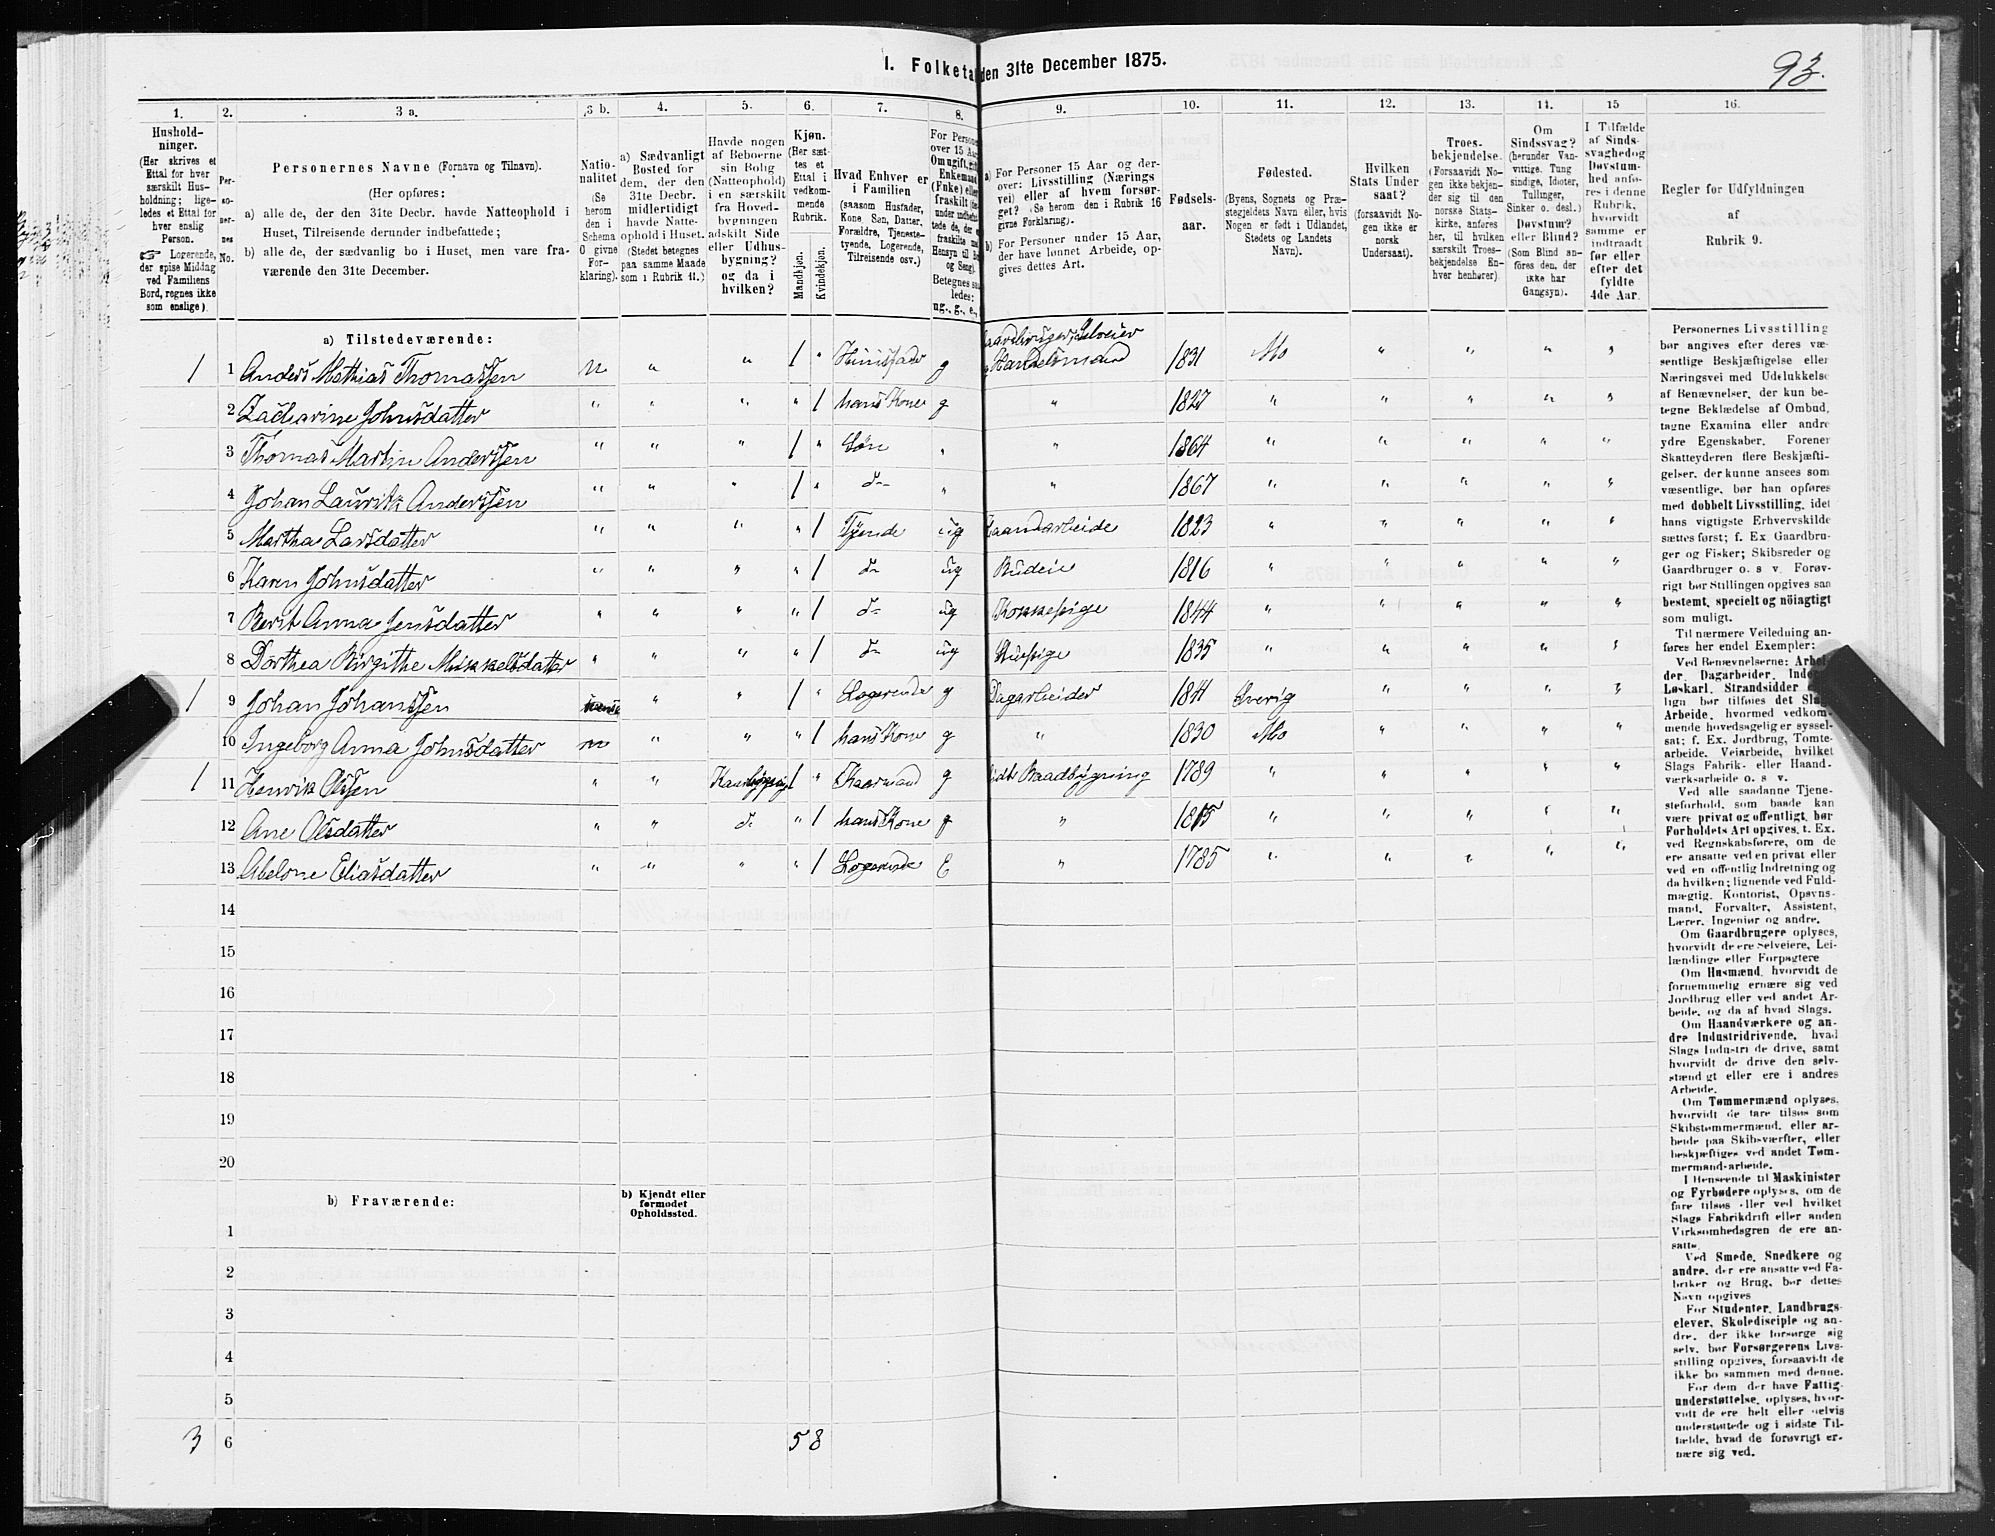 I. Folketa den 31te December 1875.
93.
1. 2. 3 a. 3 b. 4. 5. 6. 7. 8. 9. 10. 11. 12. 13. 14. 15 16.
Hushold-
ninger.
(Her skrives et
Ettal for hver
særskilt Hus-
holdning; lige-
ledes et Ettal for
hver enslig
Person.
Logerende,
der spise Middag
ved Familiens
Bord, regnes ikke
som enslige).
Per-
so-
ner-
nes
No.
Personernes Navne (Fornavn og Tilnavn).
(Her opføres:
a) alle de, der den 31te Decbr. havde Natteophold i
Huset, Tilreisende derunder indbefattede;
b) alle de, der sædvanlig bo i Huset, men vare fra-
værende den 31te December.
Natio-
nalitet
(Se
herom
den i
Schema
0 givne
For-
klaring).
a) Sædvanligt
Bosted for
dem, der den
31te Decbr.
midlertidigt
havde Natte-
ophold i Huset.
(Stedet betegnes
paa samme Maade
som i Rubrik 11.)
Havde nogen
af Beboerne
sin Bolig
(Natteophold)
i en særskilt
fra Hoved-
bygningen
adskilt Side
eller Udhus-
bygning?
og da i
hvilken?
Kjøn.
(Her sæt-
tes et
Ettal i
vedkom-
mende
Rubrik.
Mandkjøn.
Kvindekjøn.
Hvad Enhver er
i Familien
(saasom Husfader,
Kone, Søn, Datter,
Forældre, Tjeneste-
tyende, Logerende,
Tilreisende osv.)
For Person
over 15 Aa
Om ugift, gift
Enkemand
(Enke) elle
fraskilt
Betegnes saa
ledes:
ug., g., e.,
a) For Personer 15 Aar og der-
over: Livsstilling (Nærings
vei) eller af hvem forsør-
get? (Se herom den i Rubrik 16
givne Forklaring).
b) For Personer under 15 Aar,
der have lønnet Arbeide, op-
gives dettes Art.
Fødsels-
aar.
Fødested.
(Byens, Sognets og Præ-
stegjeldets Navn eller, hvis
Nogen er født i Udlandet,
Stedets og Landets
Navn).
Hvilken
Stats Under
saat?
(forsaavidt No-
gen ikke er
norsk
Undersaat).
Troes-
bekjendelse.
(Forsaavidt No-
gen ikke bekjen-
der sig til den
norske Stats-
kirke, anføres
her, til hvilken
særskilt Troes-
bekjendelse En-
hver henhører).
Om
Sindssvag?
(herunder Van-
vittige, Tung
sindige, Idioter,
Tullinger,
Sinker o. desl.)
Døvstum?
eller Blind?
(Som Blind an-
føres den, der
ikke har
Gangsyn).
I Tilfælde
af Sinds-
svaghed og
Døvstum-
hed anfø-
res i denne
Rubrik,
hvorvidt
samme er
indtraadt
før eller
efter det
fyldte
4de Aar.
Regler for Udfyldningen
af
Rubrik 9.
a) Tilstedeværende:
1 1 Anders Mathias Thomassen n " " 1 " Huusfader g aardbruger, Selveier Handelsmand 1831 Mo " " " "
2 Zacharine Johnsdatter " " " " 1 hans Kone g " 1827 " " " " "
3 Thomas Martin Anderssen " " " 1 " Søn " " 1864 " " " " "
4 Johan Laurits Anderssen " " " 1 " d– " " 1867 " " " " "
5 Martha Larsdatter " " " " 1 Tyende ug Haandarbeide 1823 " " " " "
6 Karen Johnsdatter " " " " 1 d– ug Budeie 1816 " " " " "
7 Berit Anna Jensdatter " " " " 1 d– ug Kokkepige 1844 " " " " "
8 Dorthea Birgithe Mikkelsdatter " " " " 1 d– ug Huspige 1835 " " " " "
1 9 Johan Johanssen svensk " " 1 " Logerende g Dagarbeider 1841 Sverig " " " "
10 Ingeborg Anna Johnsdatter n " " " 1 hans Kone g " 1830 Mo " " " "
1 11 Henrik Olsen " " 1 " Kaarmand g Baadbygning 1789 " " " " "
12 Ane Olsdatter " " d– " 1 hans Kone g " 1815 " " " " "
13 Abelone Eliasdatter " " " " 1 Logerende E " 1785 " " " " "
14
15
16
17
18
19
20
b) Fraværende:
b) Kjendt eller
formodet
Opholdssted.
1
2
3
4
5
3 6 5 8
Personernes Livsstilling
bør angives efter deres væ-
sentlige Beskjæftigelse eller
Næringsvei med Udelukkelse
af Benævnelser, der kun be-
tegne Beklædelse af Ombud,
tagne Examina eller andre
ydre Egenskaber. Forener
Skatteyderen flere Beskjæfti-
gelser, der kunne ansees som
væsentlige, bør han opføres
med dobbelt Livsstilling, idet
hans vigtigste Erhvervskilde
sættes først; f. Ex. Gaardbru-
ger og Fisker; Skibsreder og
Gaardbruger o. s. v. Forøv-
rigt bør Stillingen opgives saa
bestemt, specielt og nöiagtigt
som muligt.
Til nærmere Veiledning an-
føres her endel Exempler:
Ved Benævnelserne: Arbei-
der, Dagarbeider, Inder
Løskarl, Strandsidder
lign bør tilføies det Slag
Arbeide, hvormed vedkom-
mende hovedsagelig er syssel-
sat; f. Ex. Jordbrug, Tomte-
arbeide, Veiarbeide, hvilket
Slags Fabrik- eller Haand-
værksarbeide o. s. v.
Ved alle saadanne Tjene-
steforhold, som baade kan
være privat og offentligt, bør
Forholdets Art opgives, t. Ex.
ved Regnskabsførere, om de
ere ansatte ved en privat eller
ved en offentlig Indretning og
da hvilken; lignende ved Fuld-
mægtig, Kontorist, Opsyns-
mand, Forvalter, Assistent,
Lærer, Ingeniør og andre.
Om Gaardbrugere oplyses,
hvorvidt de ere Selveiere, Lei-
lændinge eller Forpagtere
Om Husmænd, hvorvidt de
fornemmelig ernære sig ved
Jordbrug eller ved andet Ar-
beide, og da af hvad Slags.
Om Haandværkere og an-
dre Industridrivende, hvad
Slags Industri de drive, samt
hvorvidt de drive den selv-
stændigt eller ere i andres
Arbeide.
Om Tømmermænd oplyses,
hvorvidt de fare tilsøs som
Skibstømmermænd, eller ar-
beide paa Skibsværfter, eller
beskjæftiges ved andet Tøm-
mermandsarbeide.
I Henseende til Maskinister
og Fyrbødere oplyses, om de
fare tilsøs eller ved hvilket
Slags Fabrikdrift eller anden
Virksomhedsgren de ere an-
satte.
Ved Smede, Snedkere og
andre, der ere ansatte ved Fa-
briker og Brug, bør dettes
Navn opgives
For Studenter, Landbrugs-
elever, Skoledisciple og an-
dre, der ikke forsørge sig
selv, bør Forsørgerens Livs-
stilling opgives, forsaavidt de
ikke bo sammen med denne.
For dem, der have Fattig-
understøttelse, oplyses, hvor-
vidt de ere helt eller delvis
understøttede og i sidste Til-
fælde, hvad de forøvrigt er-
nære sig ved.